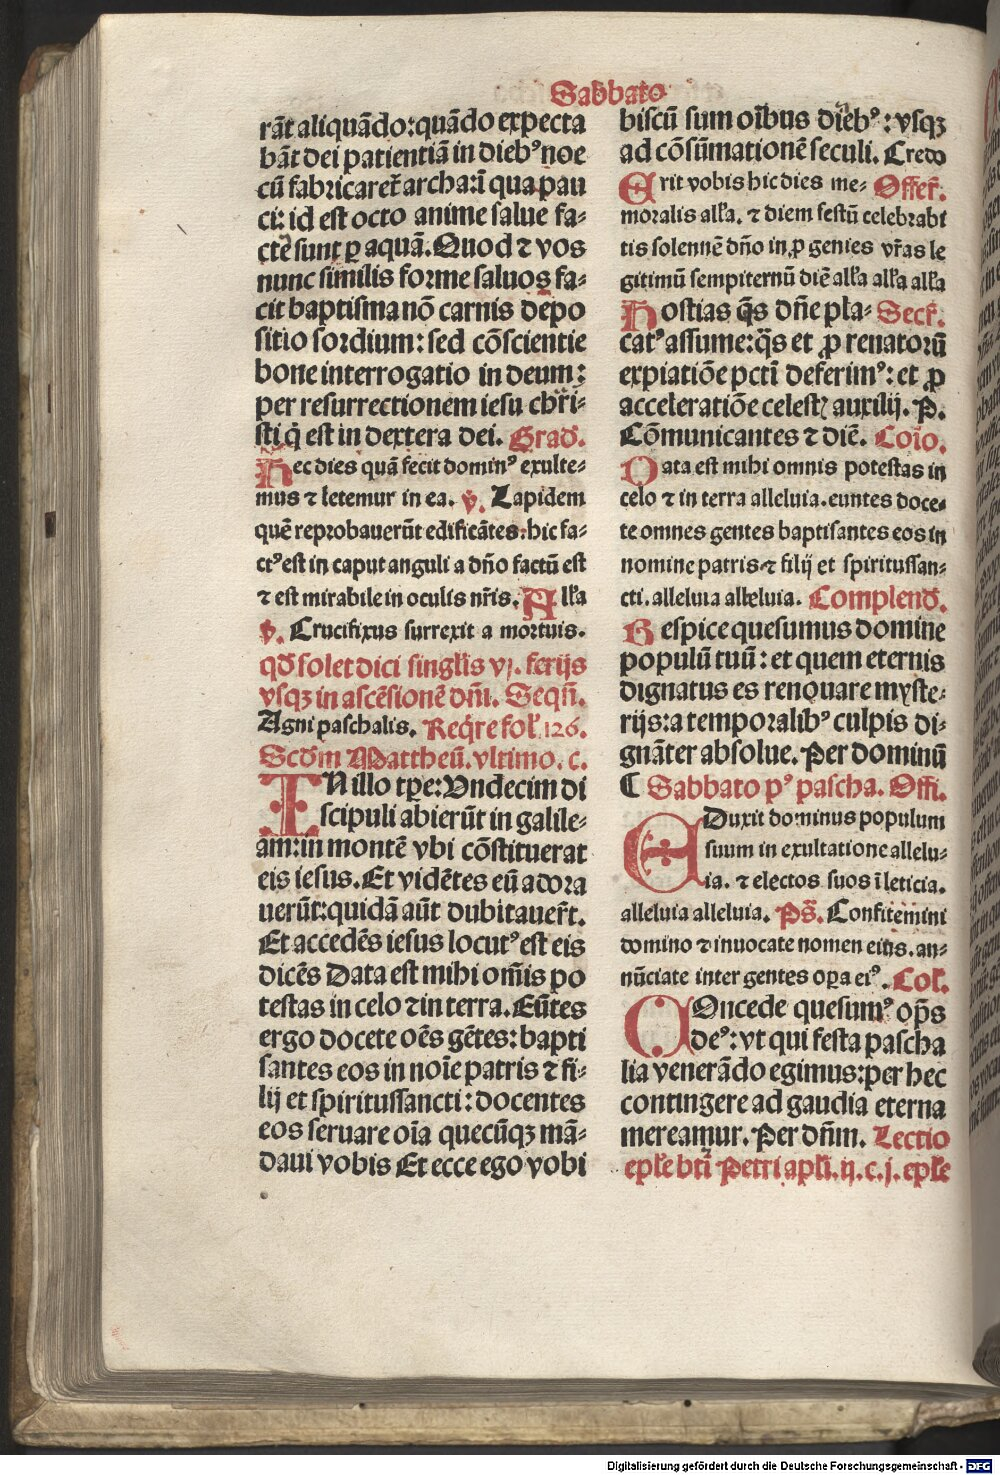 Sabbato
rāt aliquādo:quādo expecta
bāt dei patientiā in dieb⁹ noe
cū fabricaret̄ archa:ī qua pau
ci: id est octo anime salue fa-
cte sunt ꝑ aquā. Quod ⁊ vos
nunc similis forme saluos fa-
cit baptisma nō carnis depo
sitio sordium: sed cōscientie
bone interrogatio in deum:
per resurrectionem iesu chri-
sti q̇ est in dextera dei. Grad̄.
Hec dies quā fecit domin⁹ exulte-
mus ⁊ letemur in ea. v̄. Lapidem
quē reprobauerūt edificātes:hic fa-
ct⁹ est in caput anguli a dn̄o factū est
⁊ est mirabile in oculis nr̄is. All'a
v̄. Crucifixus surrexit a mortuis.
qd̄ solet dici singl'is vj. ferijs
vsqꝫ in ascēsionē dn̄i. Seqn̄.
Agni paschalis. Req̄re fol. 126.
Scd̄m Mattheū. vltimo. c.
IN illo tꝑe: Vndecim di
scipuli abierūt in galile-
am:in montē vbi cōstituerat
eis iesus. Et vidētes eū adora
uerūt:quidā aūt dubitauer̄t.
Et accedēs iesus locut⁹ est eis
dicēs Data est mihi om̄is po
testas in celo ⁊ in terra. Eūtes
ergo docete oēs gētes: bapti
santes eos in noīe patris ⁊ fi-
lij et spiritussancti: docentes
eos seruare oīa quecūqꝫ mā-
daui vobis Et ecce ego vobi
biscū sum oībus dieb⁹: vsqꝫ
ad cōsūmationē seculi. Credo
Erit vobis hic dies me- Offer̄.
moralis all'a. ⁊ diem festū celebrabi
tis solennē dn̄o in ꝓgenies vr̄as le
gitimū sempiternū diē all'a all'a all'a
Hostias q̄s dn̄e pla- Secr̄.
cat⁹ assume:q̄s et ꝓ renatorū
expiatiōe pctī deferim⁹: et ꝓ
acceleratiōe celestꝭ auxilij. P.
Cōmunicantes ⁊ diē. Coīo.
Data est mihi omnis potestas in
celo ⁊ in terra alleluia. euntes doce-
te omnes gentes baptisantes eos in
nomine patris ⁊ filij et spiritussan-
cti. alleluia alleluia. Complend̄.
Respice quesumus domine
populū tuū: et quem eternis
dignatus es renouare myste-
rijs:a temporalib⁹ culpis di-
gnāter absolue. Per dominū
C Sabbato p⁹ pascha. Offi.
EDuxit dominus populum
suum in exultatione allelu-
ia. ⁊ electos suos ī leticia.
alleluia alleluia. Ps̄. Confitemini
domino ⁊ inuocate nomen eius. an-
nūciate inter gentes oꝑa ei⁹. Col.
COncede quesum⁹ op̄s
de⁹: vt qui festa pascha
lia venerādo egimus:per hec
contingere ad gaudia eterna
mereamur. Per dn̄m. Lectio
epl'e bti Petri apl'i. ij. c. j. epl'e
Digitalisierung gefördert durch die Deutsche Forschungsgemeinschaft - DFG